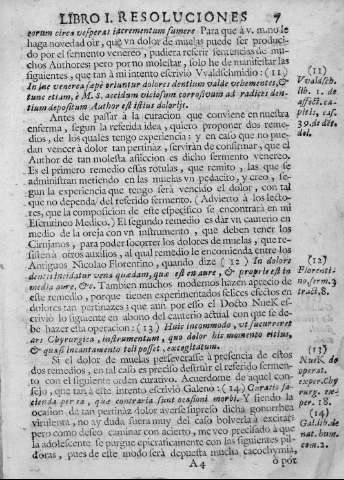 LIBRO I. RESOLUCIONES 7
eorum circa vesperas incrementum sumere. Para que à v. m. no le
haga novedad oír, que vn dolor de muelas puede ser produci-
do por el fermento venereo, pudiera referir sentencias de mu-
chos Authores; pero por no molestar, solo he de manifestar las
siguientes, que tan à mi intento escrivió Vvaldschmidio: (11)
In lue venerea sæpè oriuntur dolores dentium valdè vehementes, &
tunc etiam, è M. S. acidum vitiosum corrosivum ad radices den-
tium depositum Author est istius doloris.
Antes de passar à la curacion que conviene en nuestra
enferma, segun la referida idea, quiero proponer dos reme-
dios, de los quales tengo experiencia; y en caso que no pue-
dan vencer à dolor tan pertinaz, servirán de confirmar, que el
Author de tan molesta afliccion es dicho fermento venereo.
Es el primero remedio estas rotulas, que remito, las que se
administran metiendo en las muelas vn pedacito, y creo, se-
gun la experiencia que tengo será vencido el dolor, con tal
que no dependa del referido fermento. (Advierto à los lecto-
res, que la composicion de este especifico se encontrará en mi
Escrutineo Medico.) El segundo remedio es dar vn cauterio en
medio de la oreja con vn instrumento, que deben tener los
Cirujanos, para poder socorrer los dolores de muelas, que re-
sisten à otros auxilios, al qual remedio le encomienda entre los
Antiguos Nicolao Florentino, quando dize: (12) In dolore
dentis incidatur vena quædam, que est in aure, & propriè est in
media aure, &c. Tambien muchos modernos hazen aprecio de
este remedio, porque tienen experimentados felices efectos en
dolores tan pertinazes: que aun por esso el Docto NueK es-
crivió lo siguiente en abono del cauterio actual con que se de-
be hazer esta operacion: (13) Huic incommodo, vt succurreret
ars Chyrurgica, instrumentum, quo dolor hic momento citius,
& quasi incantamento tolli posset, excogitatum.
Si el dolor de muelas perseverasse à presencia de estos
dos remedios, en tal caso es preciso destruir el referido fermen-
to con el siguiente orden curativo. Acuerdome de aquel con-
sejo, que tan à este intento escrivió Galeno: (14) Curatio fa-
cienda per ea, que contraria sunt ocasioni morbi. Y siendo la
ocasion de tan pertinàz dolor averse supreso dicha gonorrhea
virulenta, no ay duda fuera muy del caso bolverla à excitar;
pero como deseo caminar con acierto, me veo precisado à que
la adolescente se purgue epicraticamente con las siguientes pil-
doras, pues de este modo será depuesta mucha cacochymia,
A 4 ò por
(11)
Vvaldsch.
lib. 1. de
affect. ca-
pitis, cas.
39. de dẽt.
dol.
(12)
Florenti-
no, serm. 3
tract. 8.
(13)
NueK de
operat.
exper. Chy
rurg. ex-
per. 18.
(14)
Gal. lib. de
nat. hum.
com. 2.